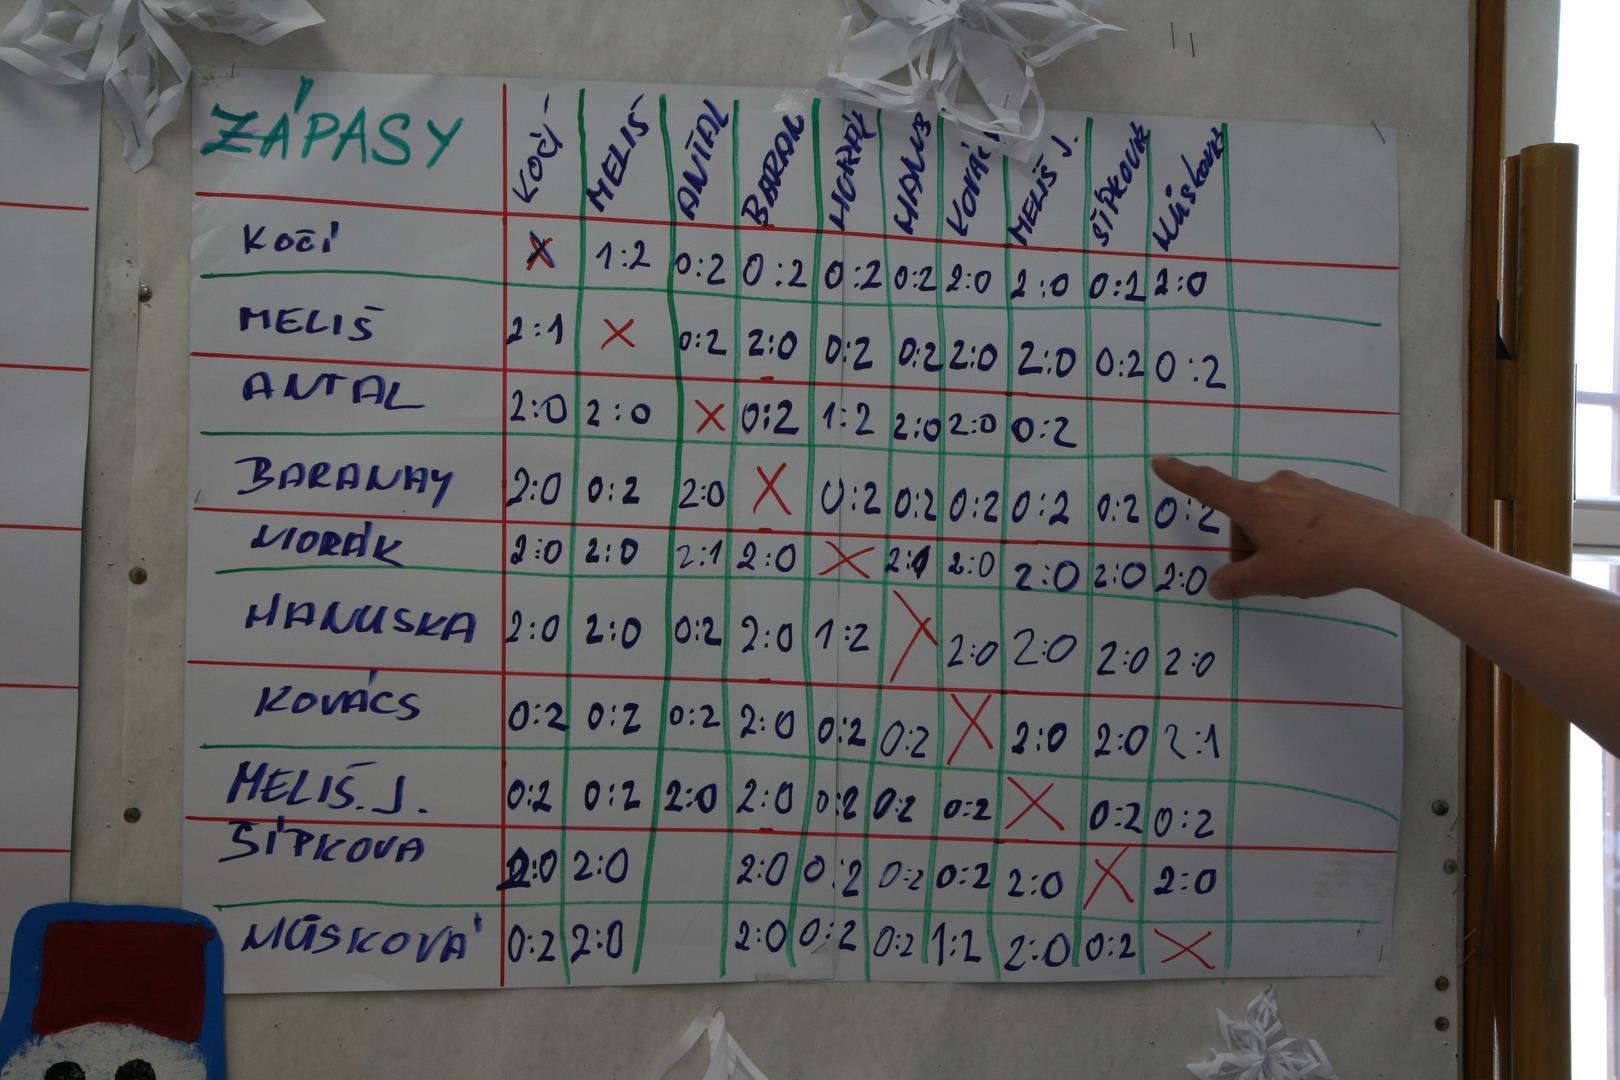 ZÁPASY KOČÍ MELIŠ ANTAL BARAN HORÁK HANUS KOVÁC MELIŠ J. ŠÍPKOVÁ
KOČÍ X 1:2 0:2 0:2 0:2 0:2 2:0 2:0 0:2 2:0
MELIŠ 2:1 X 0:2 2:0 0:2 0:2 2:0 2:0 0:2 0:2
ANTAL 2:0 2:0 X 0:2 1:2 2:0 2:0 0:2
BARANAY 2:0 0:2 2:0 X 0:2 0:2 0:2 0:2 0:2 0:2
HORÁK 2:0 2:0 2:1 2:0 X 2:1 2:0 2:0 2:0 2:0
HANUSKA 2:0 2:0 0:2 2:0 1:2 X 2:0 2:0 2:0 2:0
KOVÁCS 0:2 0:2 0:2 2:0 0:2 0:2 X 2:0 2:0 2:1
MELIŠ.J. 0:2 0:2 2:0 2:0 0:2 0:2 0:2 X 0:2 0:2
ŠÍPKOVA 2:0 2:0 2:0 0:2 0:2 0:2 2:0 X 2:0
MŪSKOVÁ 0:2 2:0 2:0 0:2 0:2 1:2 2:0 0:2 X